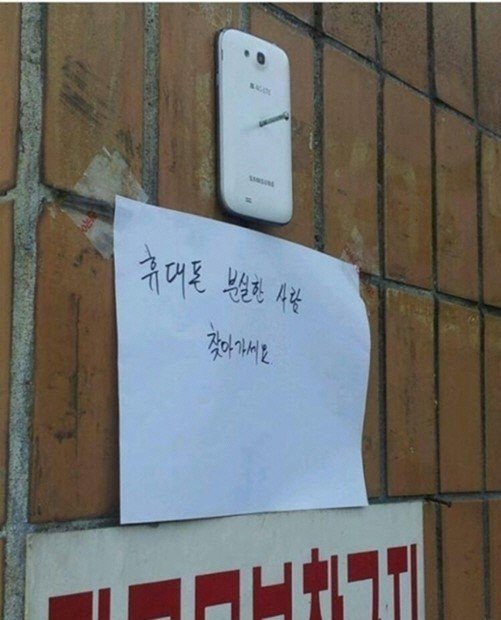 4G LTE
SAMSUNG
휴대폰 분실한 사람
찾아가세요.